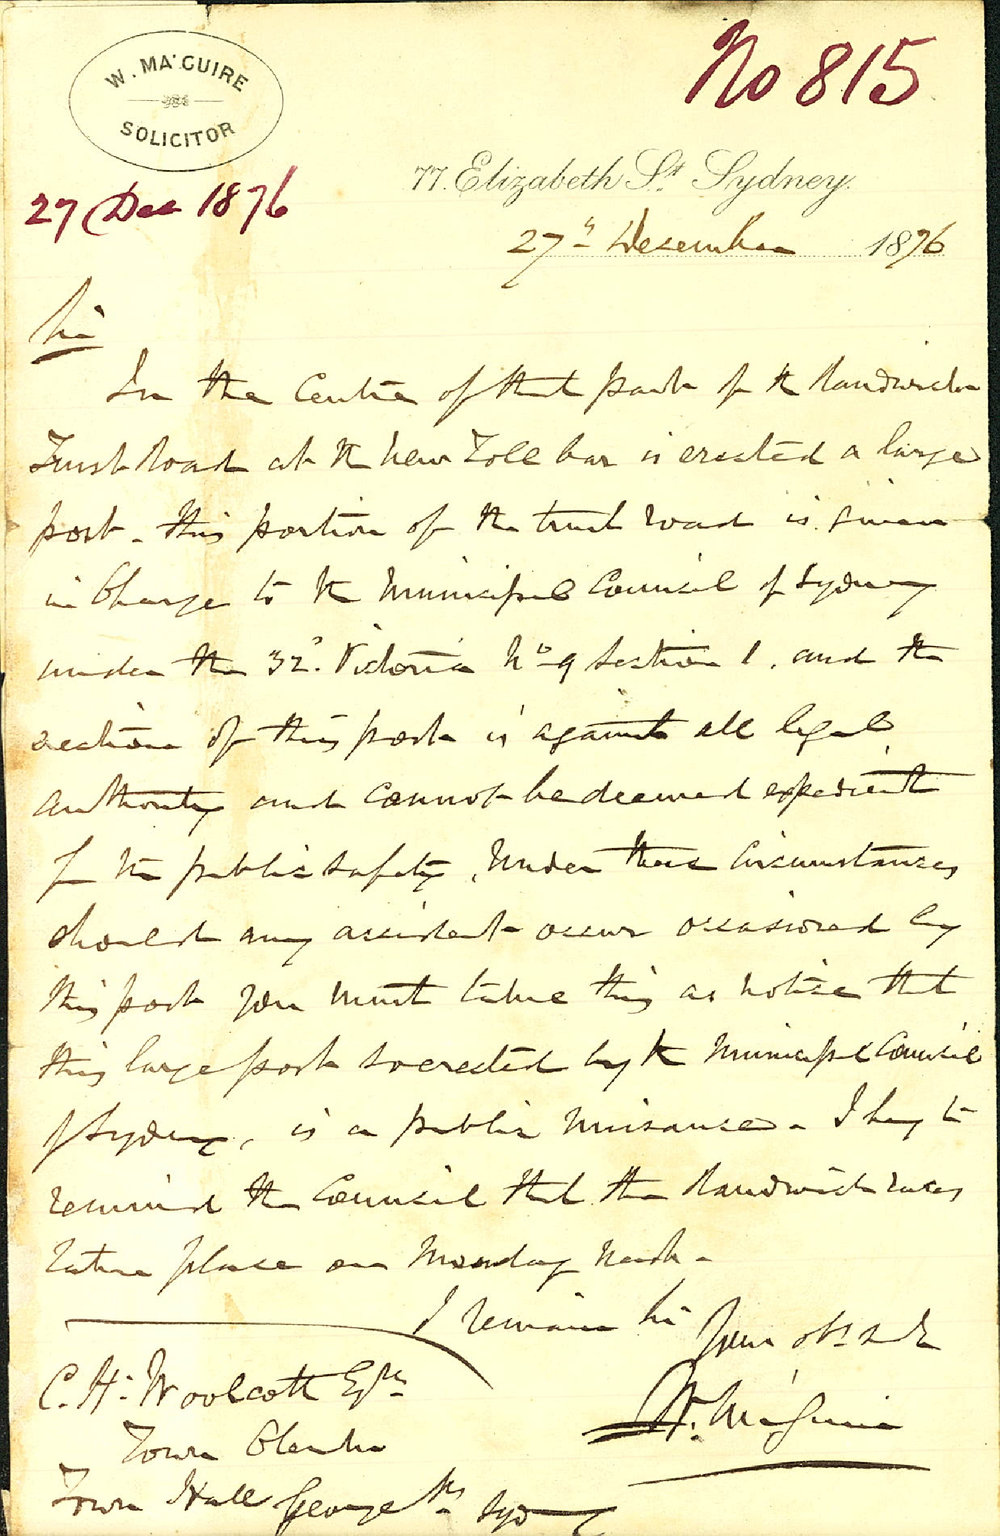 W. MA'GUIRE
SOLICITOR
No 815
27 Dec 1876
77. Elizabeth St. Sydney.
27th December 1876
Sir
In the Centre of that part of the Randwick
Trust Road at the new Toll bar is erected a large
post. this portion of the trust road is given
in Charge to the Municipal Council of Sydney
under the 32o. Victoria No 9 Section 1. and the
erection of this post is against all legal
Authority and cannot be deemed expedient
for the public safety. Under these Circumstances
should any accident occur occasioned by
this post you must take this as notice that
this large post so erected by the Municipal Council
of Sydney, is a public nuisance. I beg to
remind the Council that the Randwick races
take place on Monday next.
I remain Sir
Your obt. Servt
W. MaGuire
C. H. Woolcott Esqre
Town Clerk
Town Hall George St Sydney